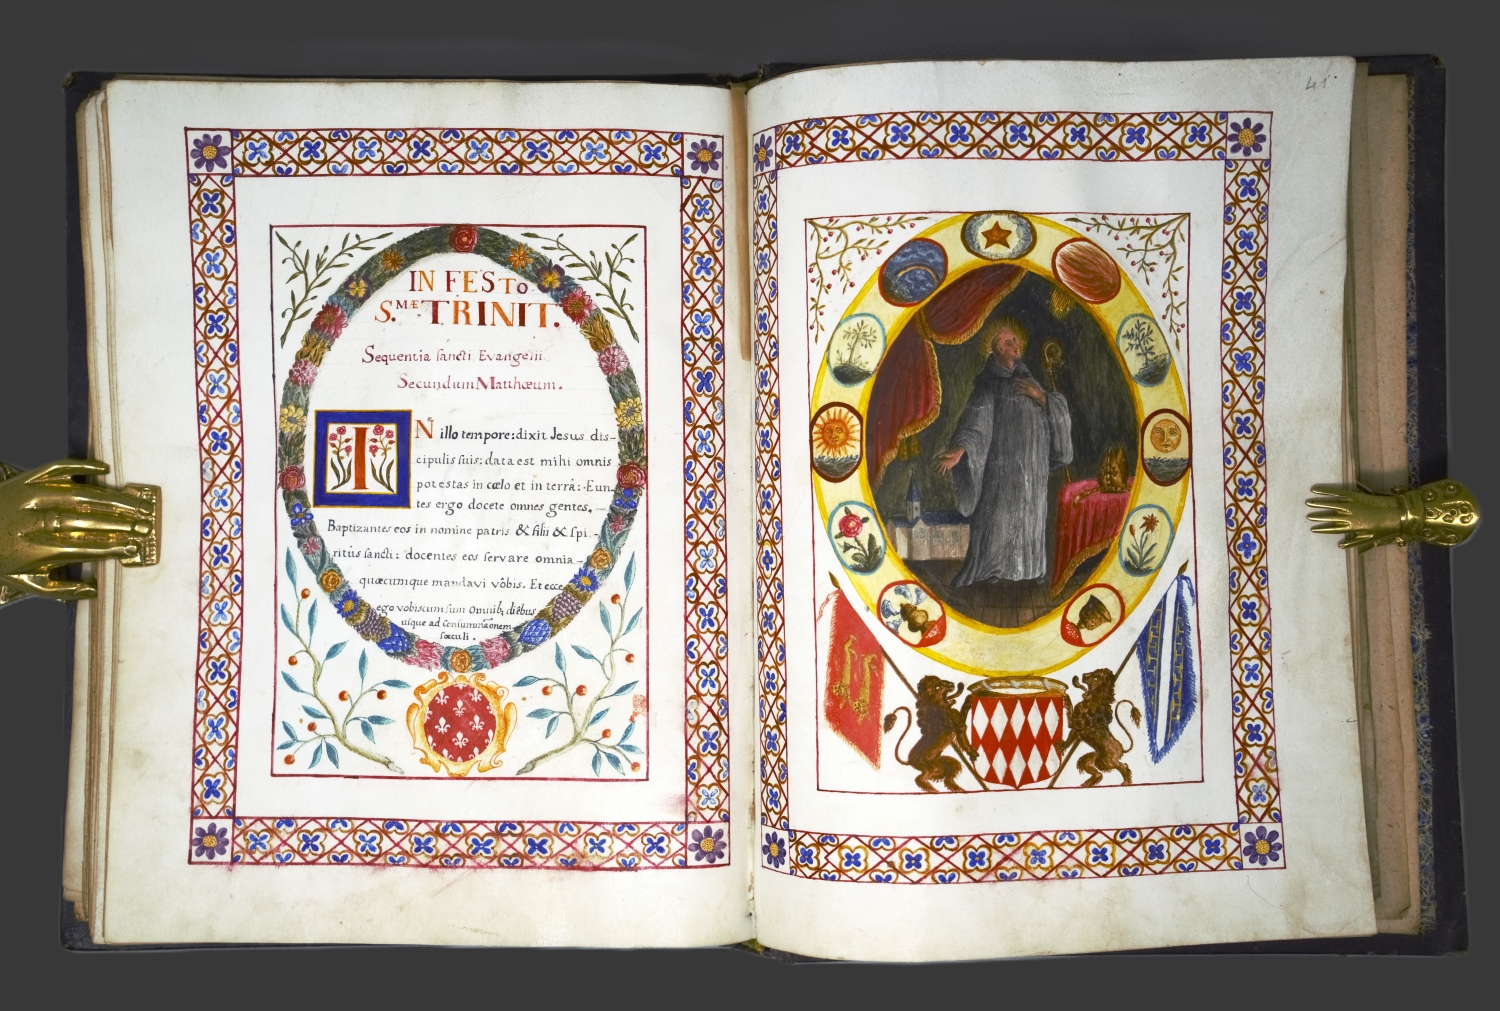 IN FESTO
S.MÆ TRINIT.
Sequentia sancti Evangelii
Secundum Matthœum.
IN illo tempore: dixit Jesus dis-
cipulis suis: data est mihi omnis
potestas in cœlo et in terrâ: Eun-
tes ergo docete omnes gentes,
Baptizantes eos in nomine patris & filii & spi-
ritùs sancti: docentes eos servare omnia
quæcumque mandavi vôbis. Et ecce
ego vobiscum sum omnib; diêbus
usque ad consummãonem
sæculi.
41